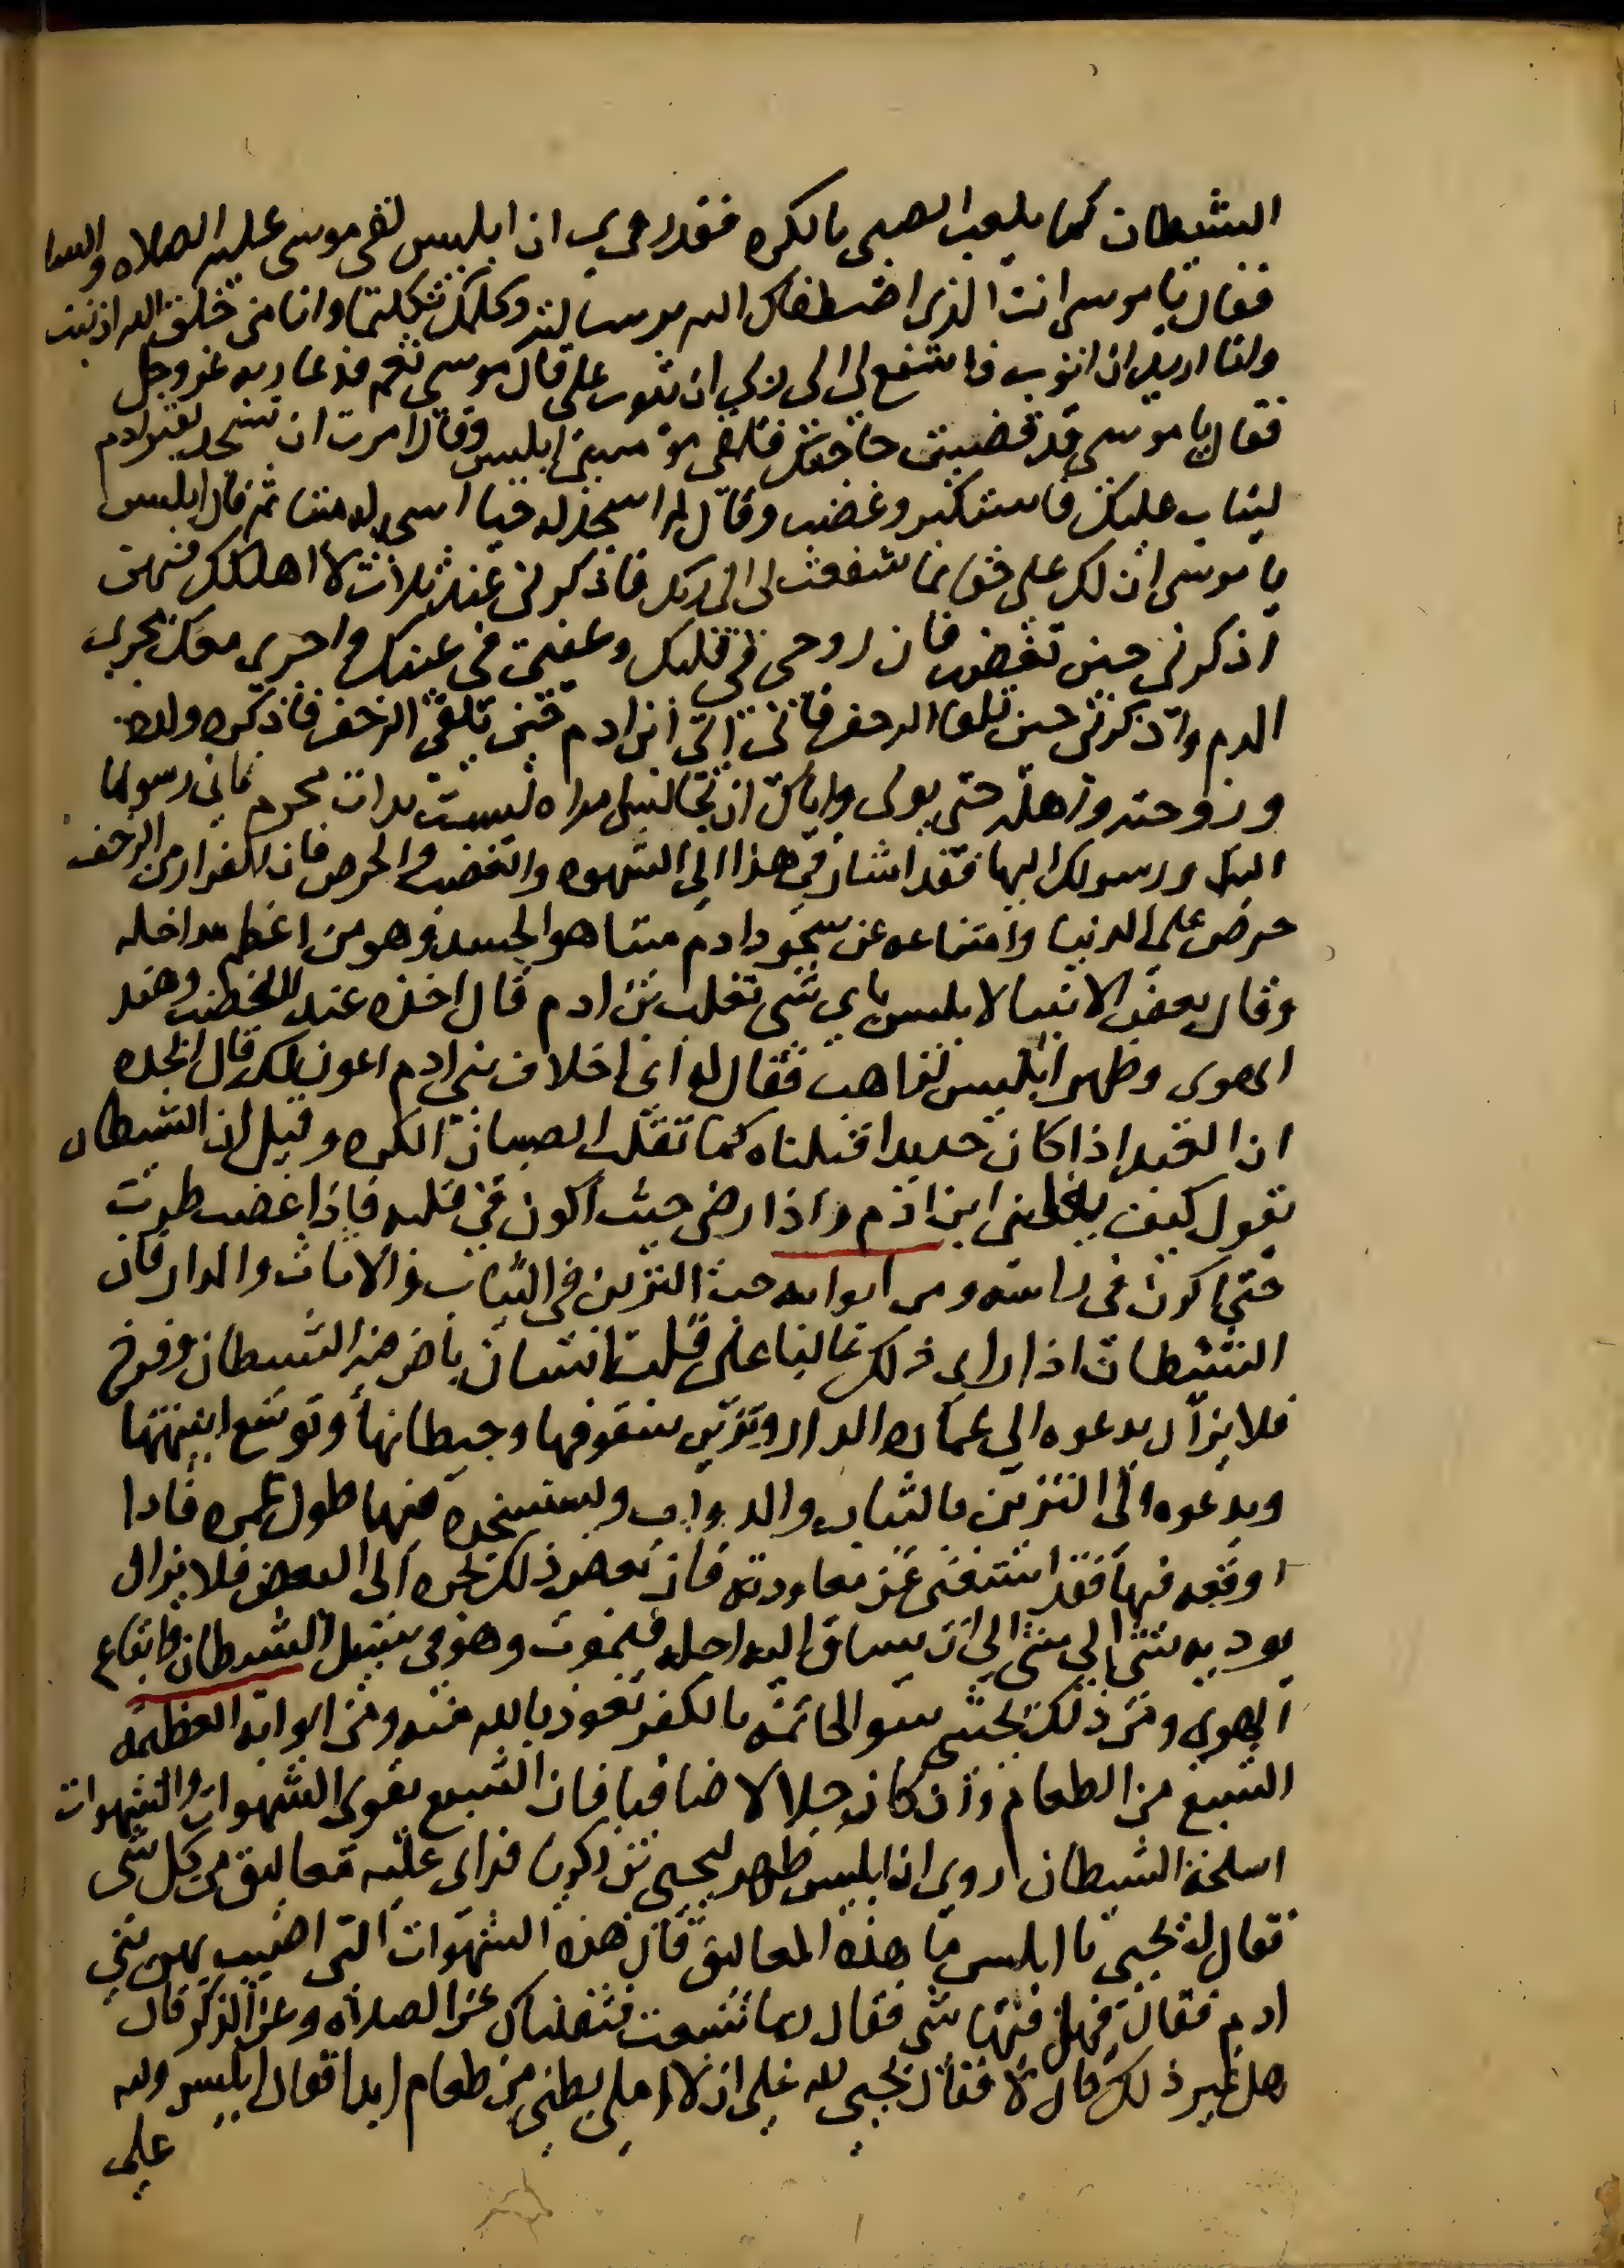 الشيطان كما يلعب الصبي بالكره فقد روي ان ابليس لقي موسى عليه الصلاه والسلا
فقال يا موسى انت الذي اصطفاك الله برسالته وكلمك تكليما وانا من خلق الله اذنبت
وانا اريد ان اتوب فاشفع لي الى ربي ان يتوب علي قال موسى نعم فدعا ربه عز وجل
فقال يا موسى قد قضيت حاجتك فلقي موسى ابليس وقال امرت ان تسجد لقبر ادم
ليتاب عليك فاستكبر وغضب وقال لم اسجد له حيا اسجد له ميتا ثم قال ابليس
يا موسى ان لك علي حق بما شفعت لي الى ربك فاذكرني عند ثلاث لا اهلكك فيهن
اذكرني حين تغضب فان روحي في قلبك وعيني في عينك واجري معك مجرى
الدم واذكرني حين تلقا الزحف فاني اتي ابن ادم حين يلقى الزحف فاذكره ولده
وزوجته واهله حتى يولي واياك ان تجالس امراه ليست بذات محرم فاني رسولها
اليك ورسولك اليها فقد اشار في هذا الى الشهوه والغضب والحرص فان الفرار من الزحف
حرص على الدنيا وامتناعه عن سجود ادم ميتا هو الحسد وهو من اعظم مداخله
وقال بعض الانبيا لابليس باي شي تغلب بني ادم قال اخذه عند الغضب وعند
الهوى وظهر ابليس لراهب فقال له اي اخلاق بني ادم اعون لك قال الحده
ان العبد اذا كان حديدا قلبناه كما تقلب الصبيان الكره وقيل ان الشيطان
يقول كيف يغلبني ابن ادم واذا رضي جيت اكون في قلبه فاذا غضب طرت
حتى اكون في راسه ومن ابوابه حب التزين في الثياب والاثاث والدار فان
الشيطان اذا راى ذلك غالبا على قلب انسان باض فيه الشيطان وفرخ
فلا يزال يدعوه الي عماره الدار وتزيين سقوفها وحيطانها وتوسع ابنيتها
ويدعوه الى التزين بالثياب والدواب ويستسخره فيها طول عمره فاذا
اوقعه فيها فقد استغنى عن معاودته فان بعض ذلك يجره الى البعض فلا يزال
يوديه شي الي شي الي ان يساق اليه اجله فيموت وهو في سبيل الشيطان واتباع
الهوى ومن ذلك يخشى سو الخاتمه بالكفر نعوذ بالله منه ومن ابوابه العظيمه
الشبع من الطعام وان كان حلالا صافيا فان الشبع يقوي الشهوات والشهوات
اسلحة الشيطان روي ان ابليس ظهر ليحيى بن زكريا فراى عليه معاليق من كل شي
فقال له يحيى يا ابليس ما هذه المعاليق قال هذه الشهوات التي اصيب بهن بني
ادم فقال فهل فيها شي فقال ربما شبعت فثقلناك عن الصلاه وعن الذكر قال
هل غير ذلك قال لا فقال يحيى لله علي ان لا املي بطني من طعام ابدا فقال ابليس ولله
علي